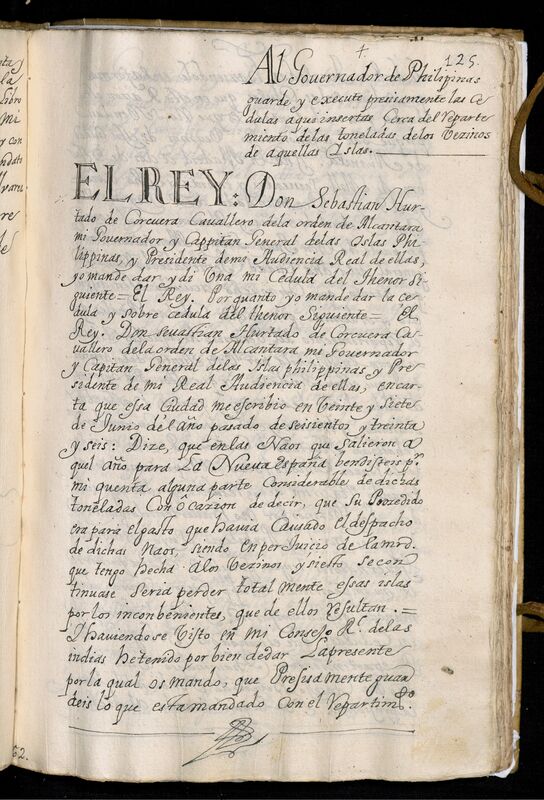 125.
Al Governador de Philipinas
guarde y execute presisamente las Ce
dulas aqui insertas Cerca del reparte
miento de las toneladas de los Vezinos
de aquellas Islas.
EL REY: Don Sebastian Hur-
tado de Corcuera Cavallero dela orden de Alcantara
mi Governador y Cappitan General delas Islas Phi
lippinas, y Presidente de mi Audiencia Real de ellas,
yo mande dar y di Una mi Cedula del thenor Si
guiente= El Rey. Por quanto yo mande dar la ce
dula y sobre cedula del thenor Siguiente= El
Rey. Don sevastian Hurtado de Corcuera Ca-
vallero dela orden de Alcantara mi Governador
y Capitan General delas Islas philippinas y Pre
sidente de mi Real Audiencia de ellas, en car-
ta que essa Ciudad me escribio en Veinte y Siete
de Junio del año pasado de seisientos y treinta
y seis: Dize, que en las Naos que salieron a
quel año para La Nueva España bendisteis pr.
mi quenta alguna parte Considerable de dichas
toneladas Con ôcazion de decir, que su Prosedido
era para el gasto que havia Causado el despacho
de dichas Naos, siendo en per Juicio de la mrd.
que tengo hecha a los Vezinos y si esto se con
tinuase seria perder total mente essas islas
por los inconbenientes, que de ellos resultan.=
I haviendose Visto en mi Consejo Rl. de las
indias he tenido por bien de dar La presente
por la qual os mando, que Presisamente guar
deis lo que esta mandado con el repartimto.
62.